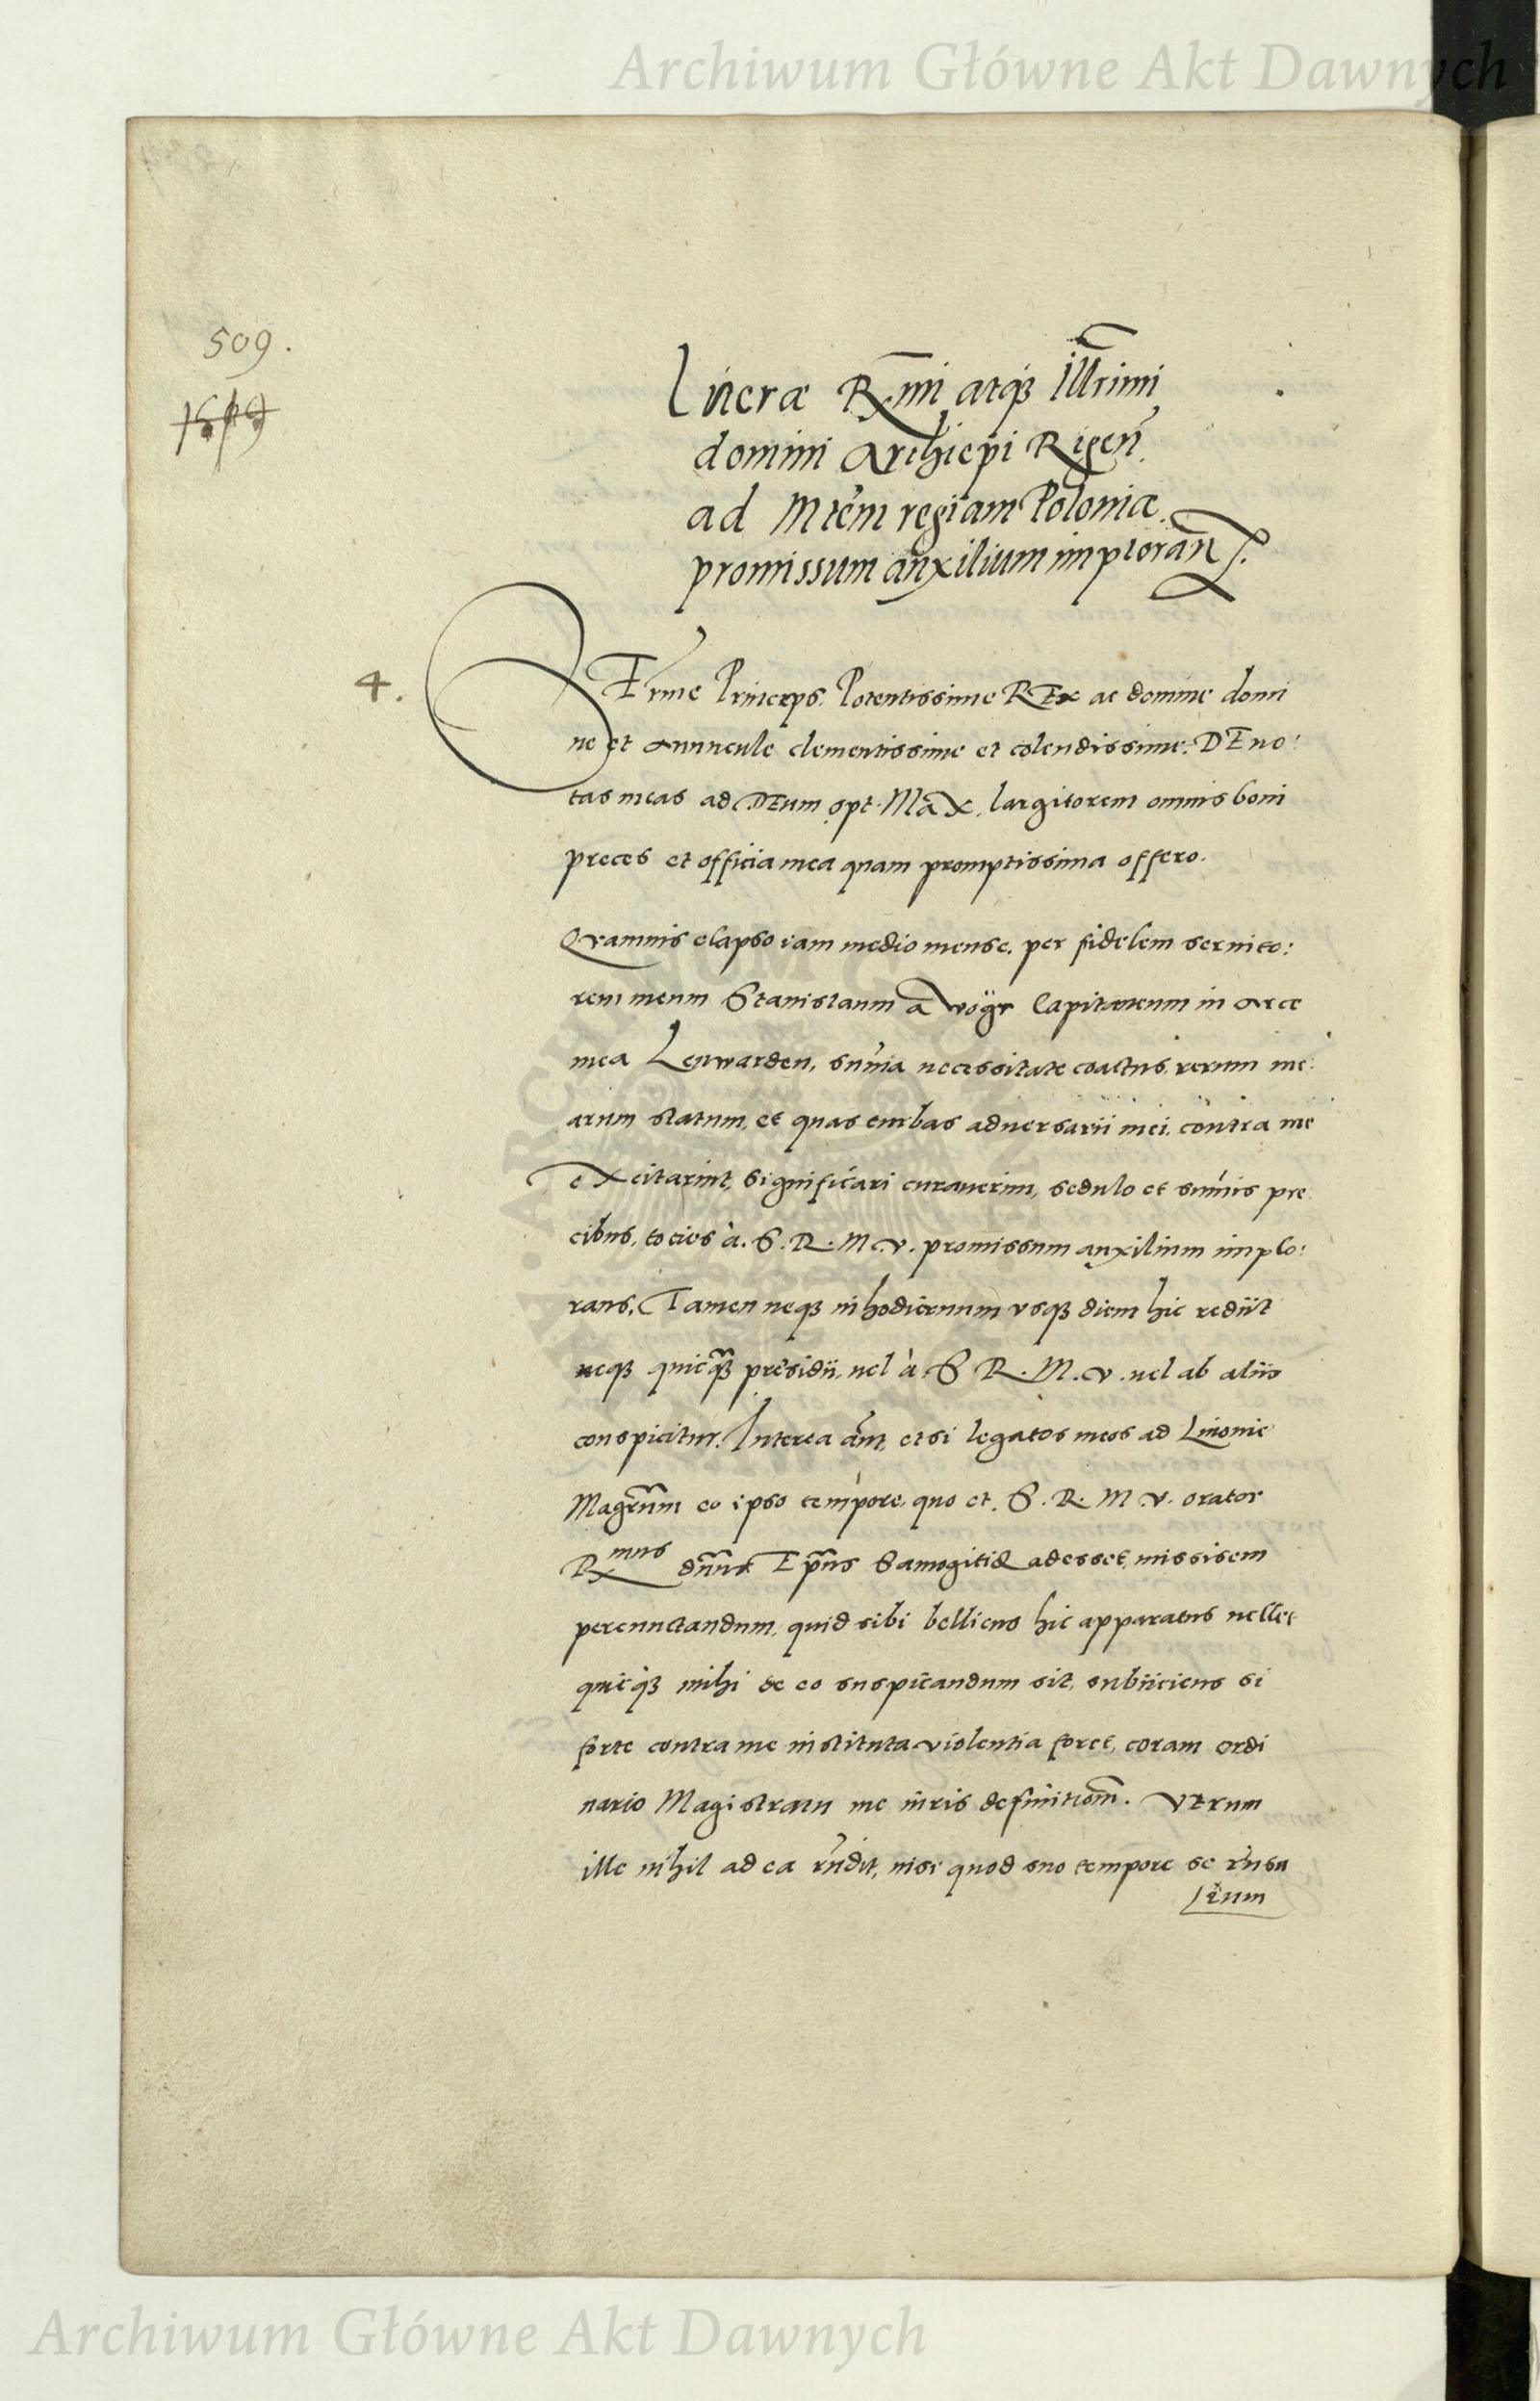 Archiwum Główne Akt Dawnych
509.
Literæ Rmi atq3 Illrimi
domini Archiepi Rigen̄.
ad Mtem regiam Poloniæ.
promissum auxilium imploran̄
4.
SErme Princeps. Potentissime REx ac domine domi
ne et Avuncule clementissime et colendissime. DEuo:
tas meas ad DEum opt. Max. largitorem omnis boni
preces et officia mea quam promptissima offero.
Quamuis elapso iam medio mense, per fidelem seruito:
rem meum Stanislaum a Capitaneum in Arce
mea Lenwarden, sum̄a necessitate coactus, rerum me:
arum statum, et quas turbas aduersarii mei, contra me
excitarint, significari curauerim, sedulo et sum̄is pre:
cibus, tocies à. S. R. M. V. promissum auxilium implo:
rans, Tamen neq3 in hodiernum vsq3 diem hic rediit
neq3 quicq̄3 presidii, uel à S. R. M. V. uel ab aliis
conspicitur. Interea aūt, etsi legatos meos ad Liuonie
Magr̄um eo ipso tempore, quo et. S. R. M V. orator
Rmus dn̄us Ep̄us Samogitiæ adesset, missisem
percunctandum, quid sibi bellicus hic apparatus uellet
quicq3 mihi de eo suspicandum sit, subiiciens si
forte contra me instituta violentia foret, coram ordi
nario Magistratu me iuris definitiom̄. Verum
ille nihil ad ea rn̄dit, nisi quod suo tempore se rn̄su
rum
Archiwum Główne Akt Dawnych